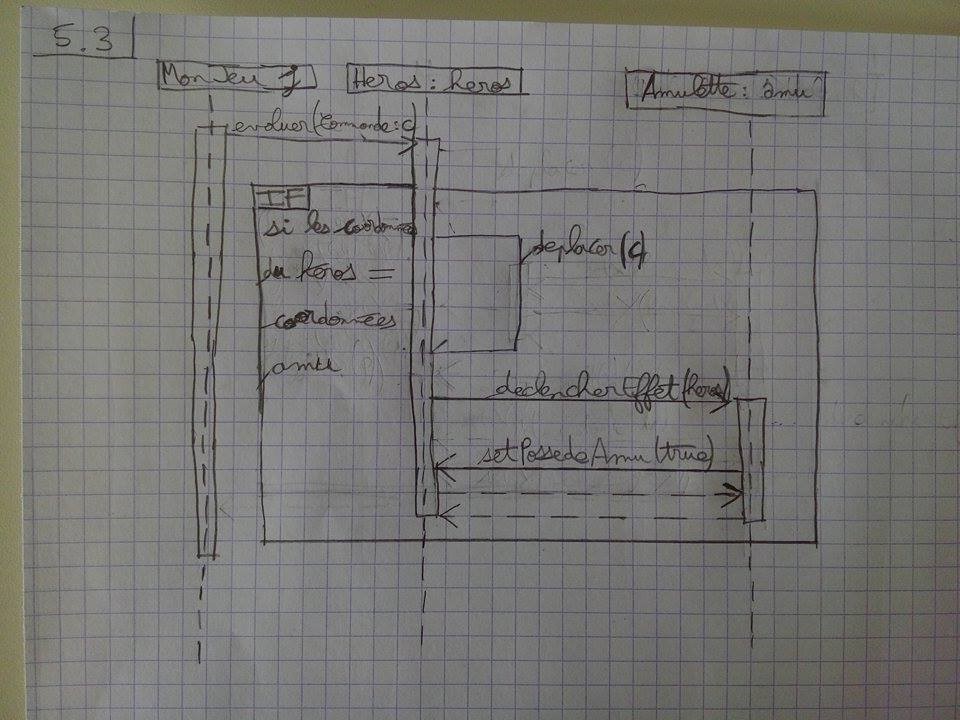 5.3
Mon Jeu
Heros : heros
Amulette : amu
evoluer(Commande:c)
IF
si les coordonnées
du héros =
coordonnées
amu
deplacer(c)
declencherEffet(heros)
setPossedeAmu(true)